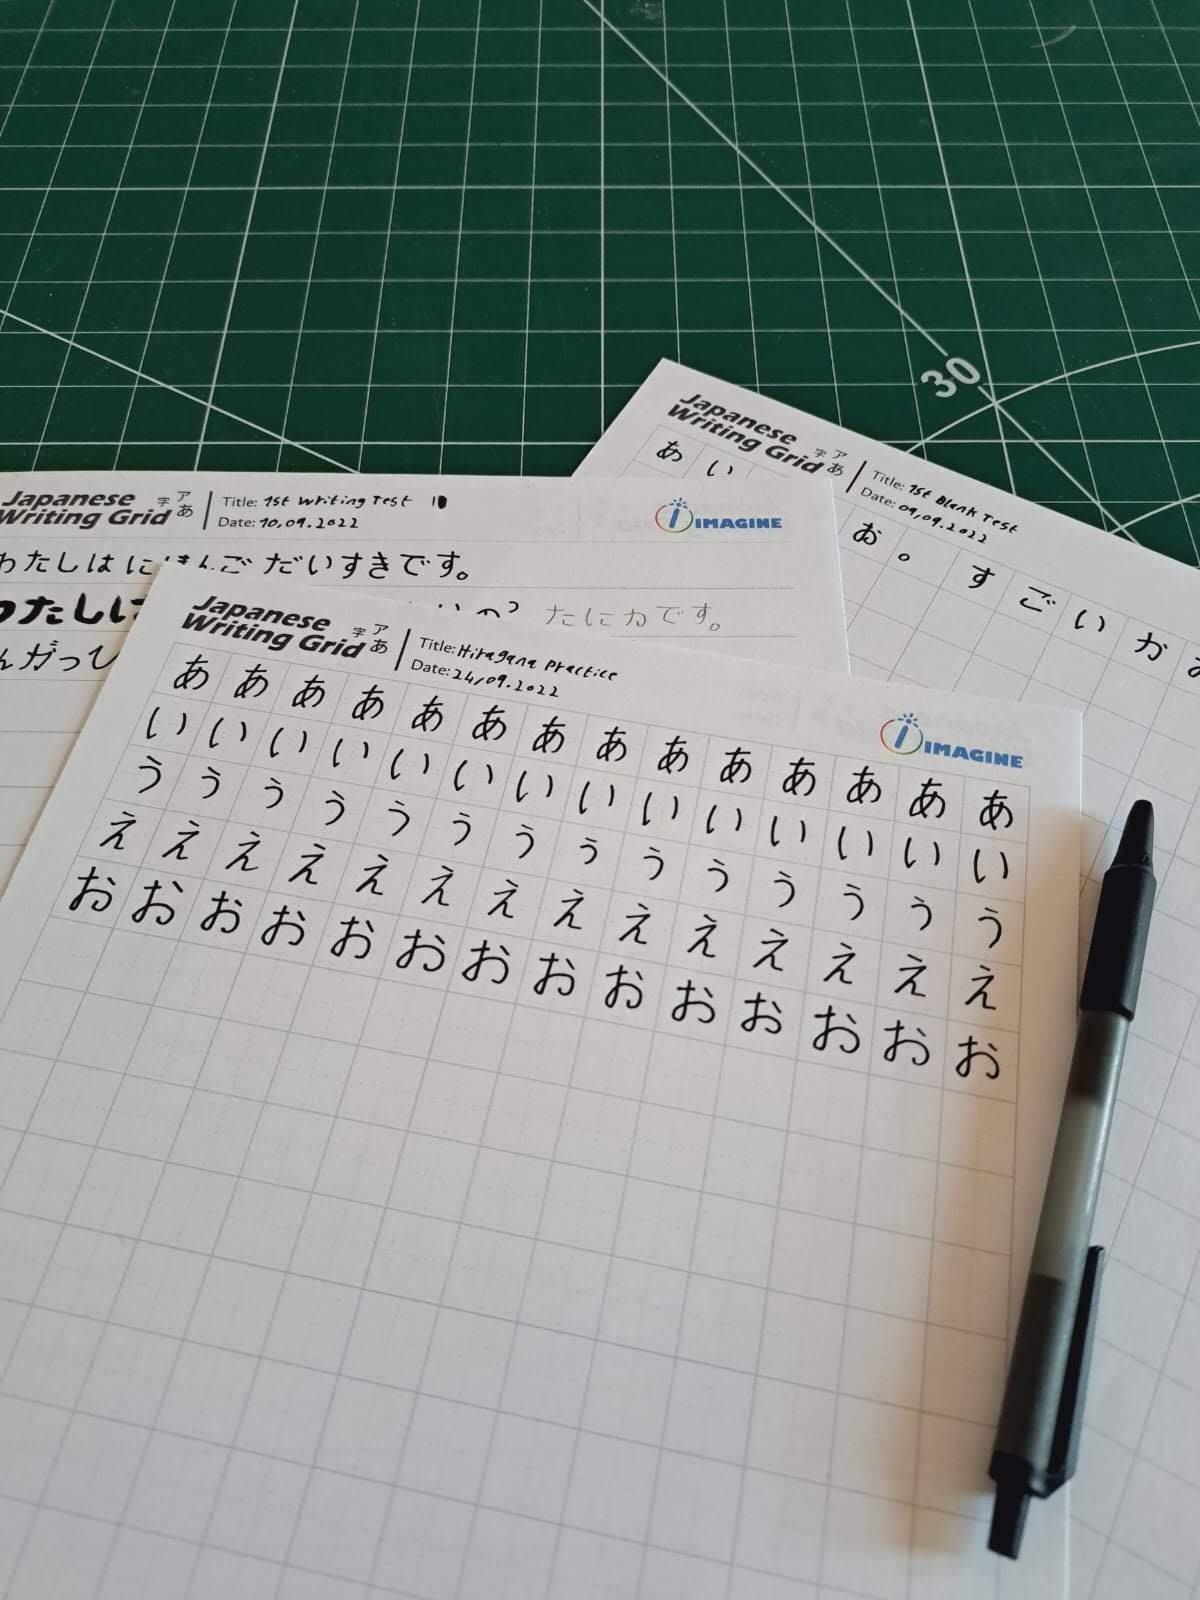 30
Japanese
Writing Grid 字 ア あ
Title: 1st Blank Test
Date: 09,09.2022
あ い
お 。 す ご い か
Japanese
Writing Grid 字 ア あ
Title: 1st Writing Test
Date: 10,09.2022
IMAGINE
わたしはにほんごだいすきです。
わたしに たにかです。
んがつひ
Japanese
Writing Grid 字 ア あ
Title: Hiragana Practice
Date: 24,09.2022
IMAGINE
あ あ あ あ あ あ あ あ あ あ あ あ あ あ
い い い い い い い い い い い い い い
う う う う う う う う う う う う う う
え え え え え え え え え え え え え え
お お お お お お お お お お お お お お